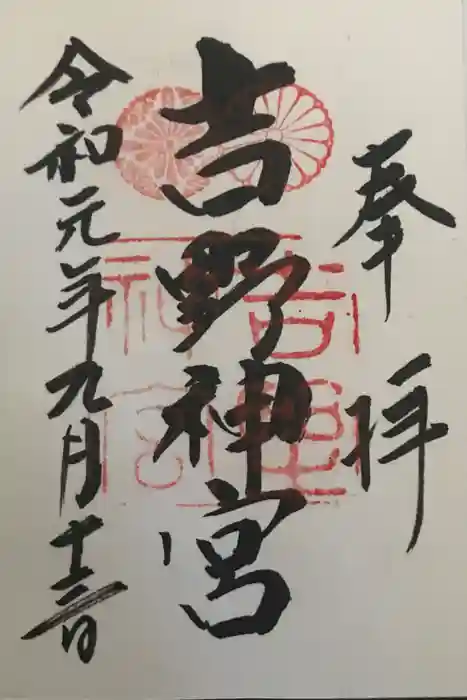 奉拝
吉野神宮
令和元年九月十三日
吉野神宮